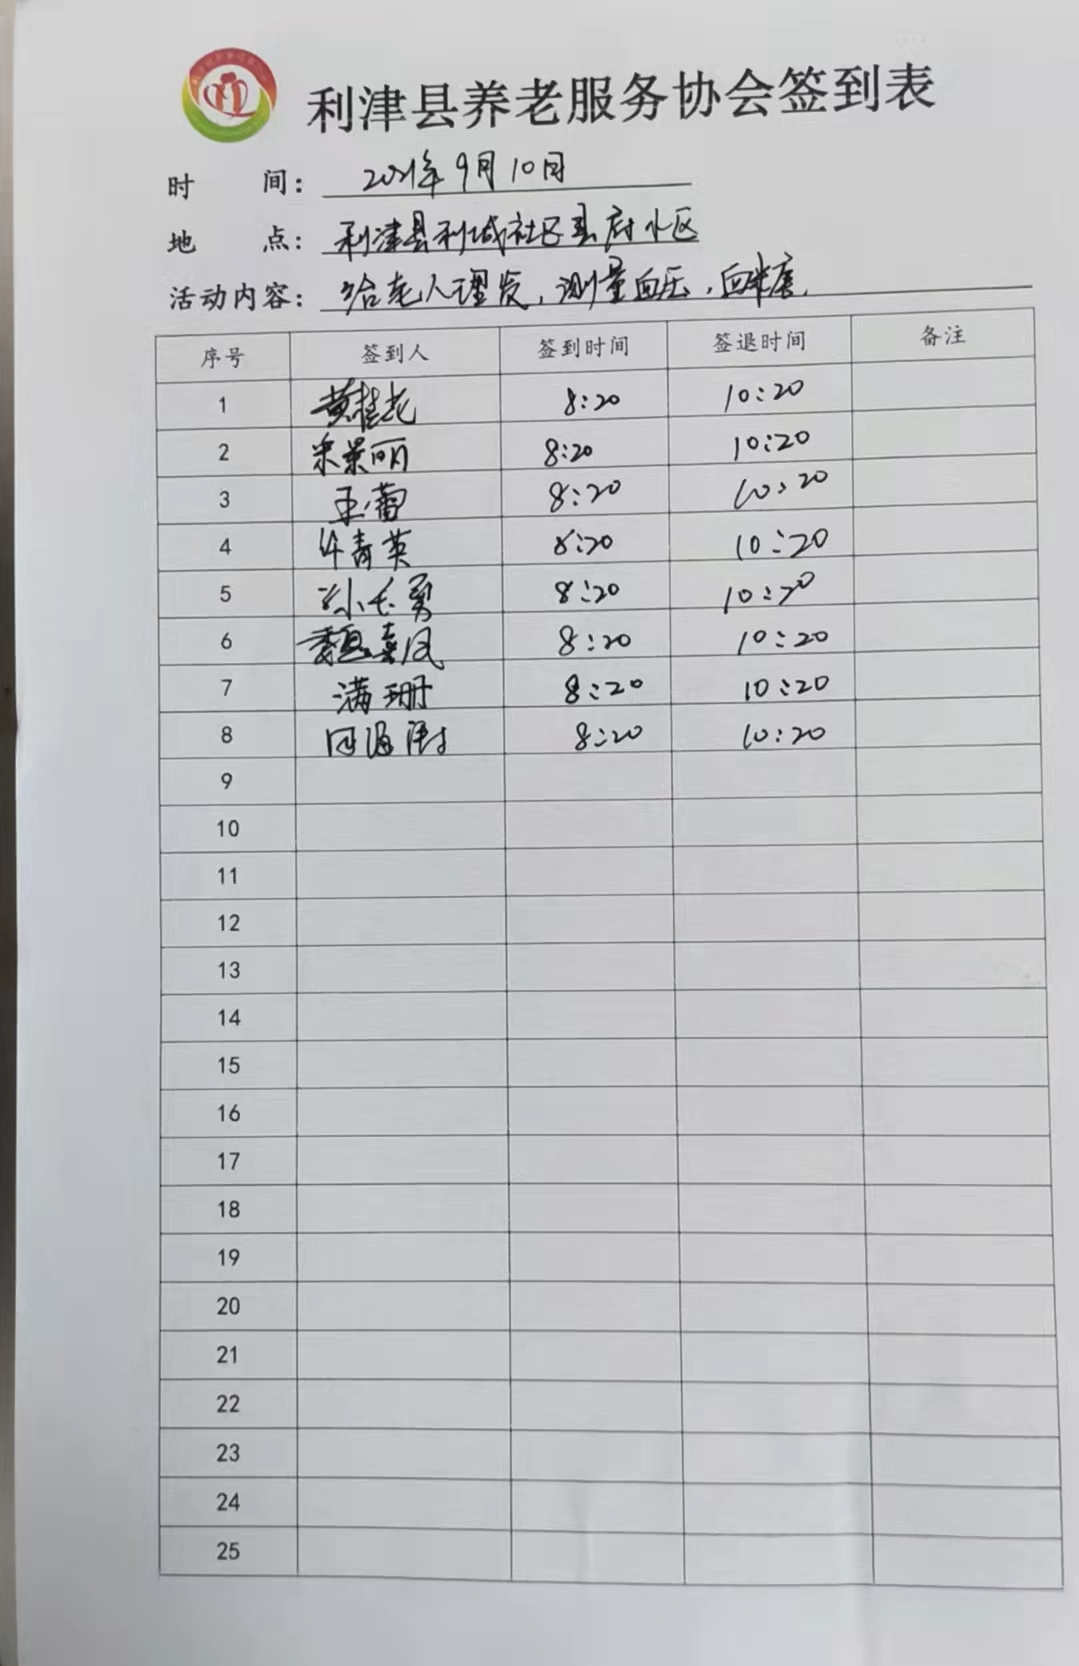 利津县养老服务协会签到表
时 间: 2021年9月10日
地 点: 利津县利城社区县府小区
活动内容: 给老人理发,测量血压,血糖.
序号 签到人 签到时间 签退时间 备注
1 黄桂花 8:20 10:20
2 宋景丽 8:20 10:20
3 王蕾 8:20 10:20
4 牛青英 8:20 10:20
5 孙长勇 8:20 10:20
6 魏春凤 8:20 10:20
7 满珊 8:20 10:20
8 8:20 10:20
9
10
11
12
13
14
15
16
17
18
19
20
21
22
23
24
25